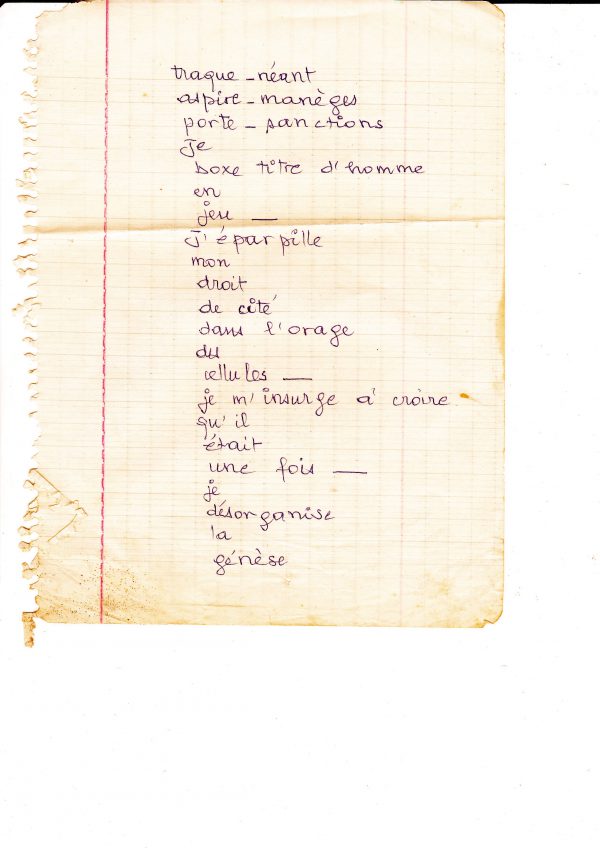 traque - néant
aspire - manèges
porte - sanctions
Je
boxe titre d'homme
en
jeu —
J'éparpille
mon
droit
de cité
dans l'orage
des
cellules —
je m'insurge à croire
qu'il
était
une fois —
je
désorganise
la
génèse